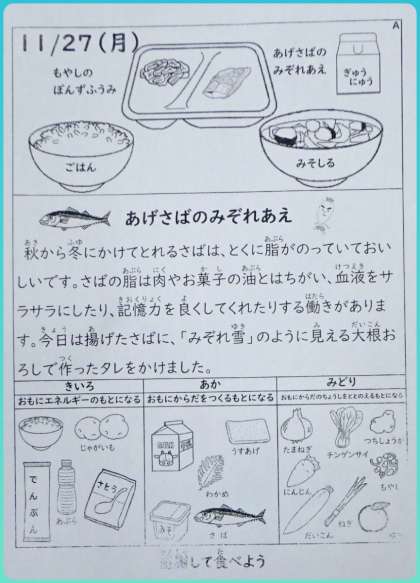 A
11/27(月)
もやしの
ぽんずふうみ
あげさばの
みぞれあえ
ぎゅう
にゅう
ごはん
みそしる
あげさばのみぞれあえ
秋から冬にかけてとれるさばは、とくに脂がのっていておい
しいです。さばの脂は肉やお菓子の油とはちがい、血液をサ
ラサラにしたり、記憶力を良くしてくれたりする働きがありま
す。今日は揚げたさばに、「みぞれ雪」のように見える大根お
ろしで作ったタレをかけました。
きいろ
おもにエネルギーのもとになる
じゃがいも
でんぷん
あぶら
さとう
あか
おもにからだをつくるもとになる
うすあげ
わかめ
みそ
さば
みどり
おもにからだのちょうしをととのえるもとになる
たまねぎ
チンゲンサイ
つちしょうが
にんじん
もやし
だいこん
ねぎ
して食べよう